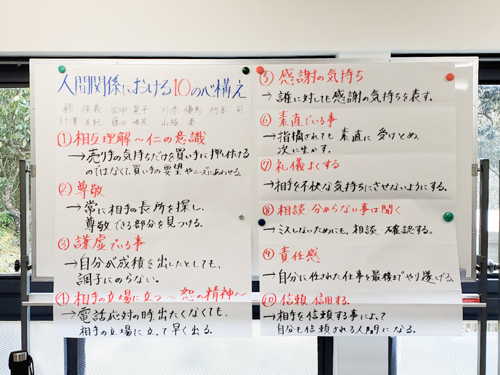 人間関係における10の心構え
①相互理解～仁の意識
→売り手の気持ちだけを買い手に押し付ける
のではなくて、買い手の要望やニーズにあわせる。
②尊敬
→常に相手の長所を探し、
尊敬できる部分を見つける。
③謙虚でいる事
→自分が成績を出したとしても、
調子にのらない。
④相手の立場に立つ～恕の精神～
→電話応対の時、出たくなくても、
相手の立場に立って早く出る。
⑤感謝の気持ち
→誰に対しても感謝の気持ちを表す。
⑥素直でいる事
→指摘されても素直に受けとめ、
次に生かす。
⑦礼儀よくする
→相手を不快な気持ちにさせないようにする。
⑧相談 分からない事は聞く
→ミスしないためにも、相談 確認する。
⑨責任感
→自分に任された仕事を最後までやり遂げる。
⑩信頼 信用する。
→相手を信頼する事によって
自分も信頼される人間になる。